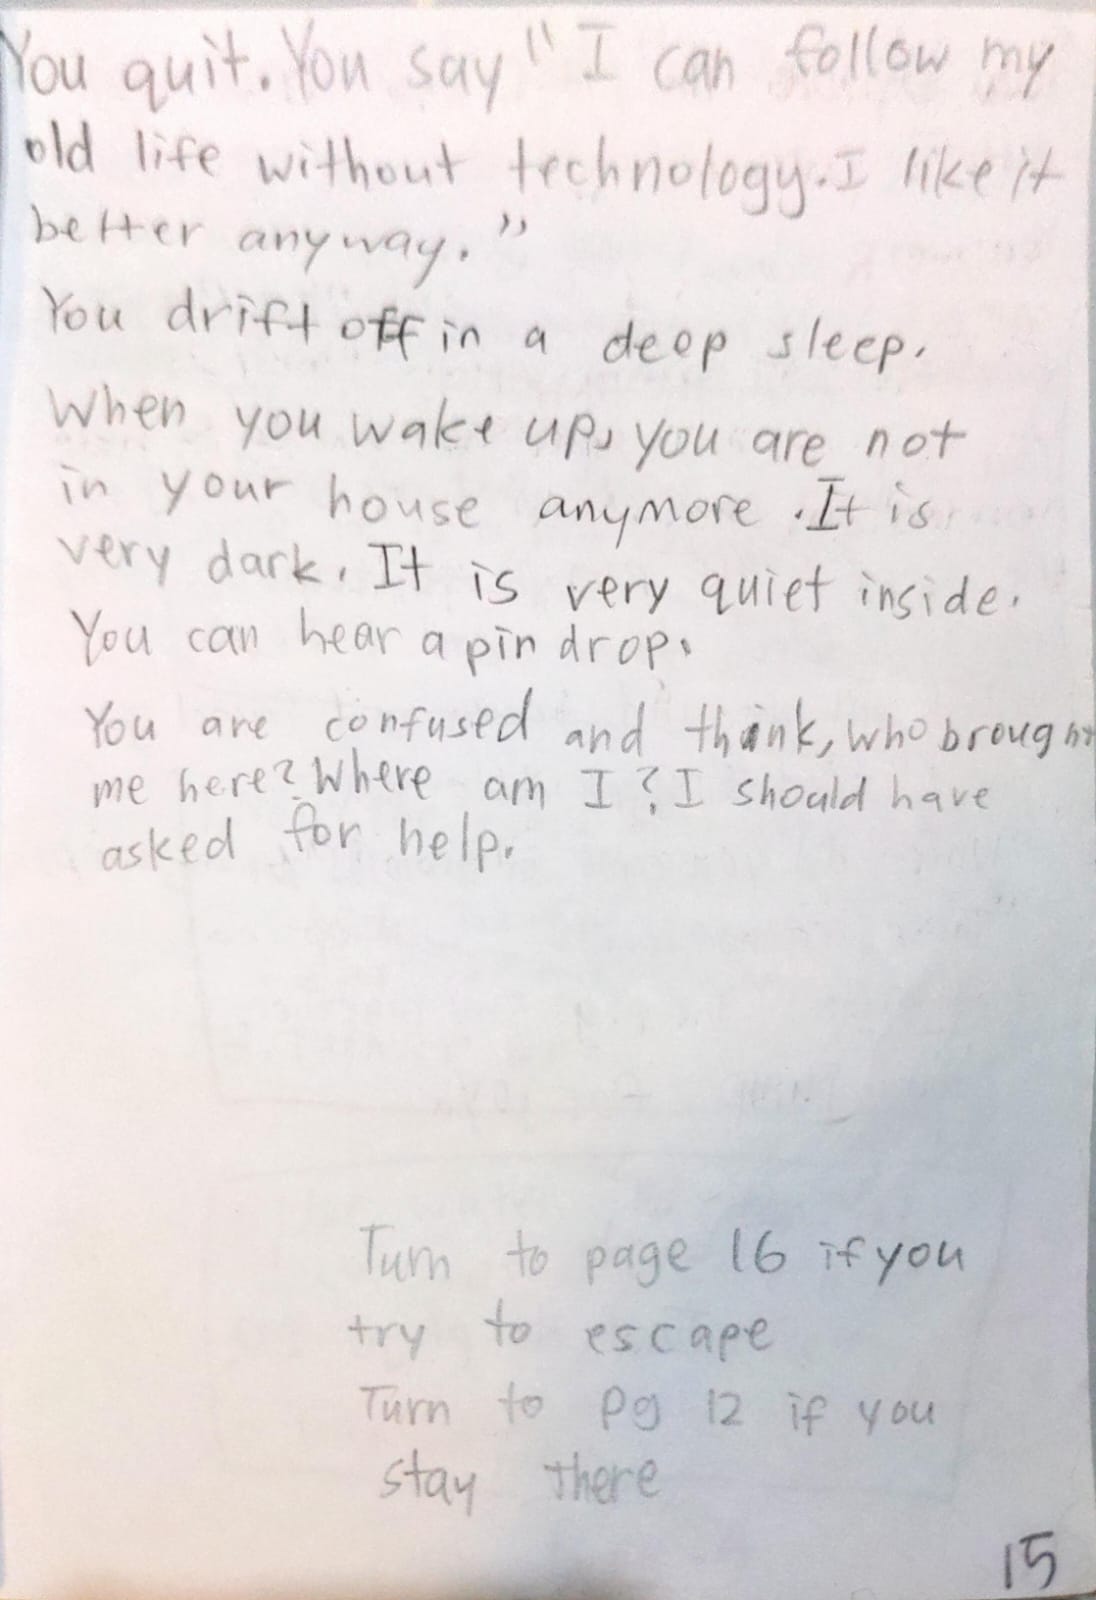 You quit. You say "I can follow my
old life without technology. I like it
better anyway."
You drift off in a deep sleep.
When you wake up, you are not
in your house anymore. It is
very dark. It is very quiet inside.
You can hear a pin drop.
You are confused and think, who brought
me here? Where am I? I should have
asked for help.
Turn to page 16 if you
try to escape
Turn to pg 12 if you
stay there
15